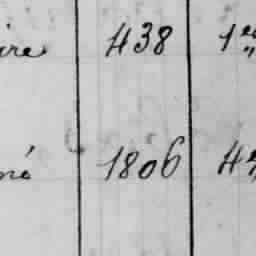 ire 438 1er
né 1806 4e